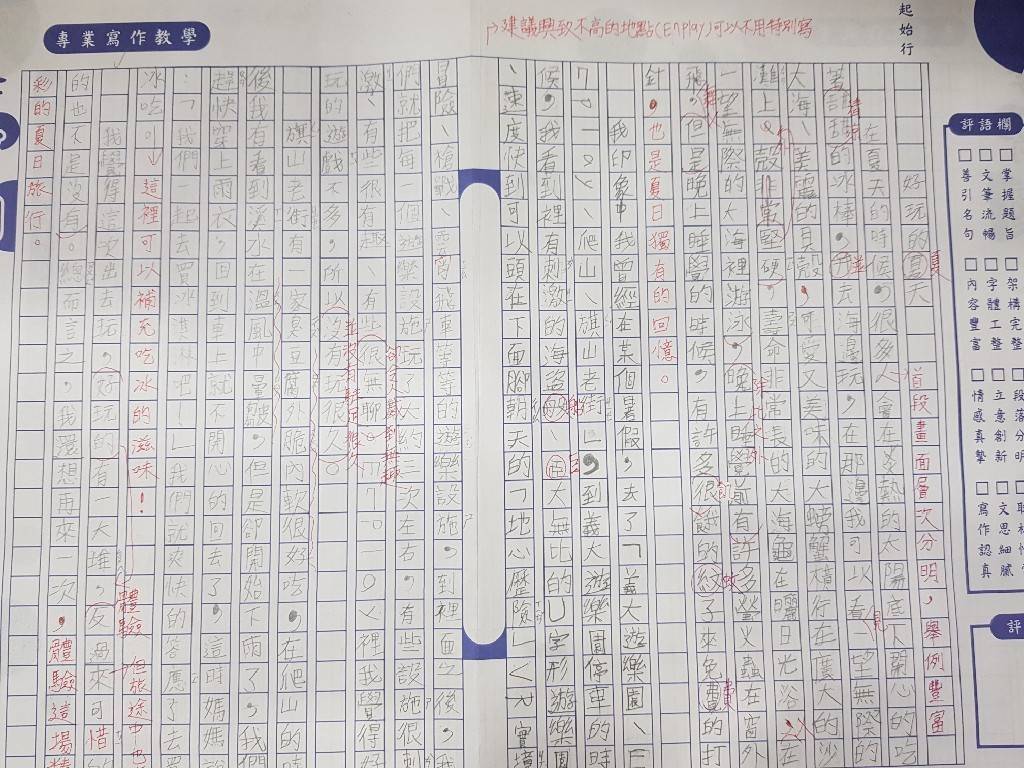 專業寫作教學
建議興致不高的地點(Enplay)可以不用特別寫
起始行
評語欄
掌握題旨
文筆流暢
善引名句
架構完整
字體工整
內容豐富
段落分明
立意創新
情感真摯
文思細膩
寫作認真
好玩的夏天
首段畫面層次分明，舉例豐富
在夏天的時候，很多人會在炎熱的太陽底下開心的吃
著清涼的冰棒，去海邊玩，在那邊我可以看見一望無際的
大海、美麗的貝殼，可愛又美味的大螃蟹橫行在廣大的沙
灘上，殼非常堅硬、壽命非常長的大海龜在曬日光浴，在
一望無際的大海裡游泳，晚上睡覺前有許多螢火蟲在窗外
飛。但是晚上睡覺的時候，有許多很餓的蚊子來免費的打
針，也是夏日獨有的回憶。
我印象中我曾經在某個暑假，去了「義大遊樂園、
爬山、旗山老街」，到義大遊樂園停車的時
候，我看到裡有刺激的海盜船、巨大無比的U字形遊樂園
、速度快到可以頭在下面腳朝天的「地心歷險」實境
冒險、槍戰、雲霄飛車等等的遊樂設施，到裡面之後我
們就把每一個遊樂設施玩了大約三次左右，有些設施很刺
激、有些很有趣、有些很無聊。裡我覺得好
玩的遊戲不多，所以沒有玩很久。
旗山老街有一家臭豆腐外脆內軟很好吃，在爬山的時
後我有看到溪水在溫風中，但是卻開始下雨了，我們
趕快穿上雨衣，回到車上就不開心的回去了。這時媽媽說
：「我們一起去買冰淇淋吧！」我們就爽快的答應了去買
冰吃。這裡可以補充吃冰的滋味！
體驗
但旅途中也
我覺得這次出去玩，好玩的有一大堆，反過來可惜
的也不是沒有。總而言之，我還想再來一次，體驗這場精
彩的夏日旅行。